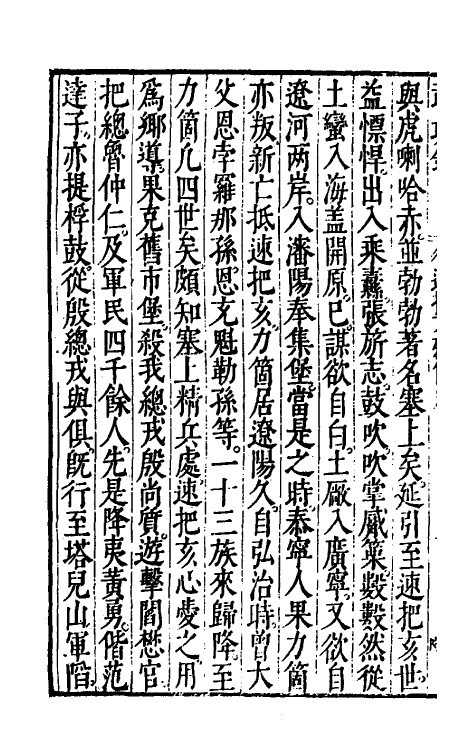 與虎喇哈赤並勃勃著名塞上矣延引至速把亥世
益慓悍出入乘纛張旂志鼓吹吹掌觱篥數數然從
土蠻入海盖開原已謀欲自白土廠入廣寧又欲自
遼河两岸入瀋陽奉集堡當是之時泰寧人果力箇
亦叛新亡抵速把亥力箇居遼陽久自弘治時曾大
父恩孛羅那孫恩克魁勒孫等一十三族來歸降至
力箇凡四世矣頗知塞上精兵處速把亥心愛之用
爲鄉導果克舊市堡殺我總戎殷尚質遊擊閻懋官
把總魯仲仁及軍民四千餘人先是降夷黃勇偕范
達子亦提桴鼓從殷總戎與俱旣行至塔兒山軍陷